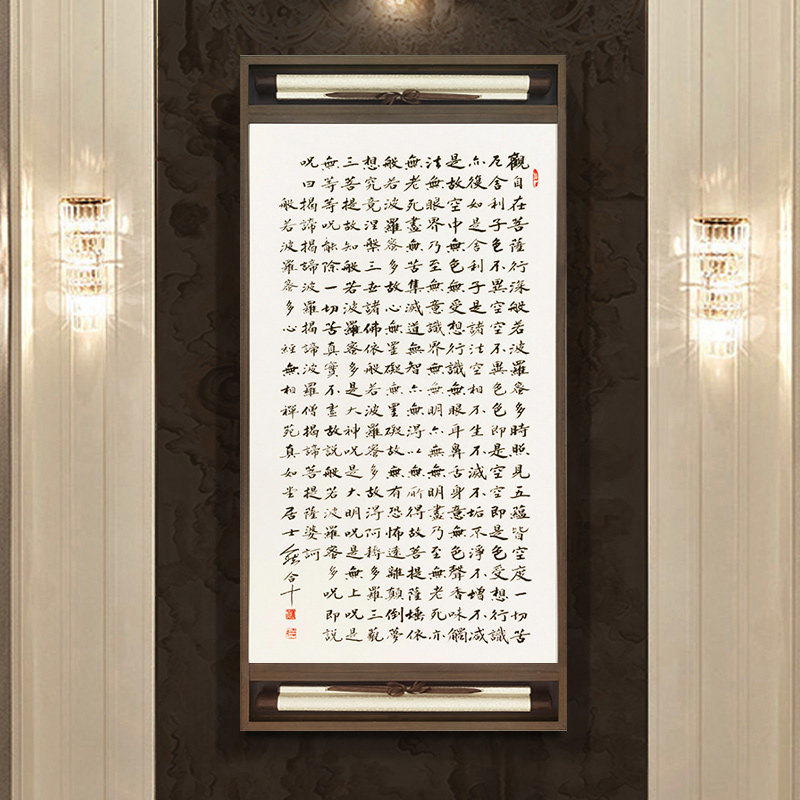 觀自在菩薩行深般若波羅蜜多時照見五蘊皆空度一切苦
厄舍利子色不異空空不異色色即是空空即是色受想行識
亦復如是舍利子是諸法空相不生不滅不垢不淨不增不減
是故空中無色無受想行識無眼耳鼻舌身意無色聲香味觸
法無眼界乃至無意識界無無明亦無無明盡乃至無老死亦
無老死盡無苦集滅道無智亦無得以無所得故菩提薩埵依
般若波羅蜜多故心無罣礙無罣礙故無有恐怖遠離顛倒夢
想究竟涅槃三世諸佛依般若波羅蜜多故得阿耨多羅三藐
三菩提故知般若波羅蜜多是大神呪是大明呪是無上呪是
無等等呪能除一切苦真實不虛故說般若波羅蜜多呪即說
呪曰揭諦揭諦波羅揭諦波羅僧揭諦菩提薩婆訶
般若波羅蜜多心經無相禪苑真如堂居士合十